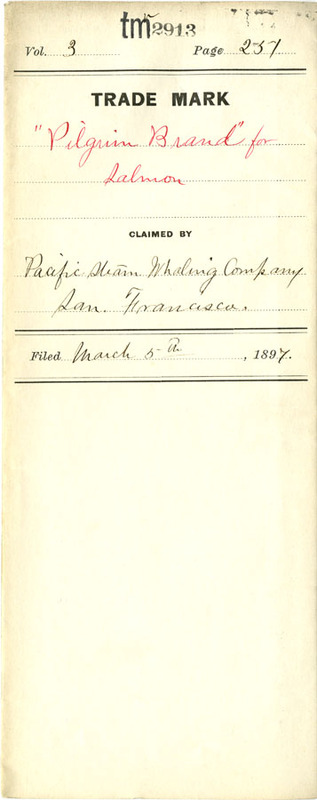 tm 2913
Vol. 3 Page 257
TRADE MARK
"Pilgrim Brand" for
Salmon
CLAIMED BY
Pacific Steam Whaling Company
San Francisco.
Filed March 5th, 1897.